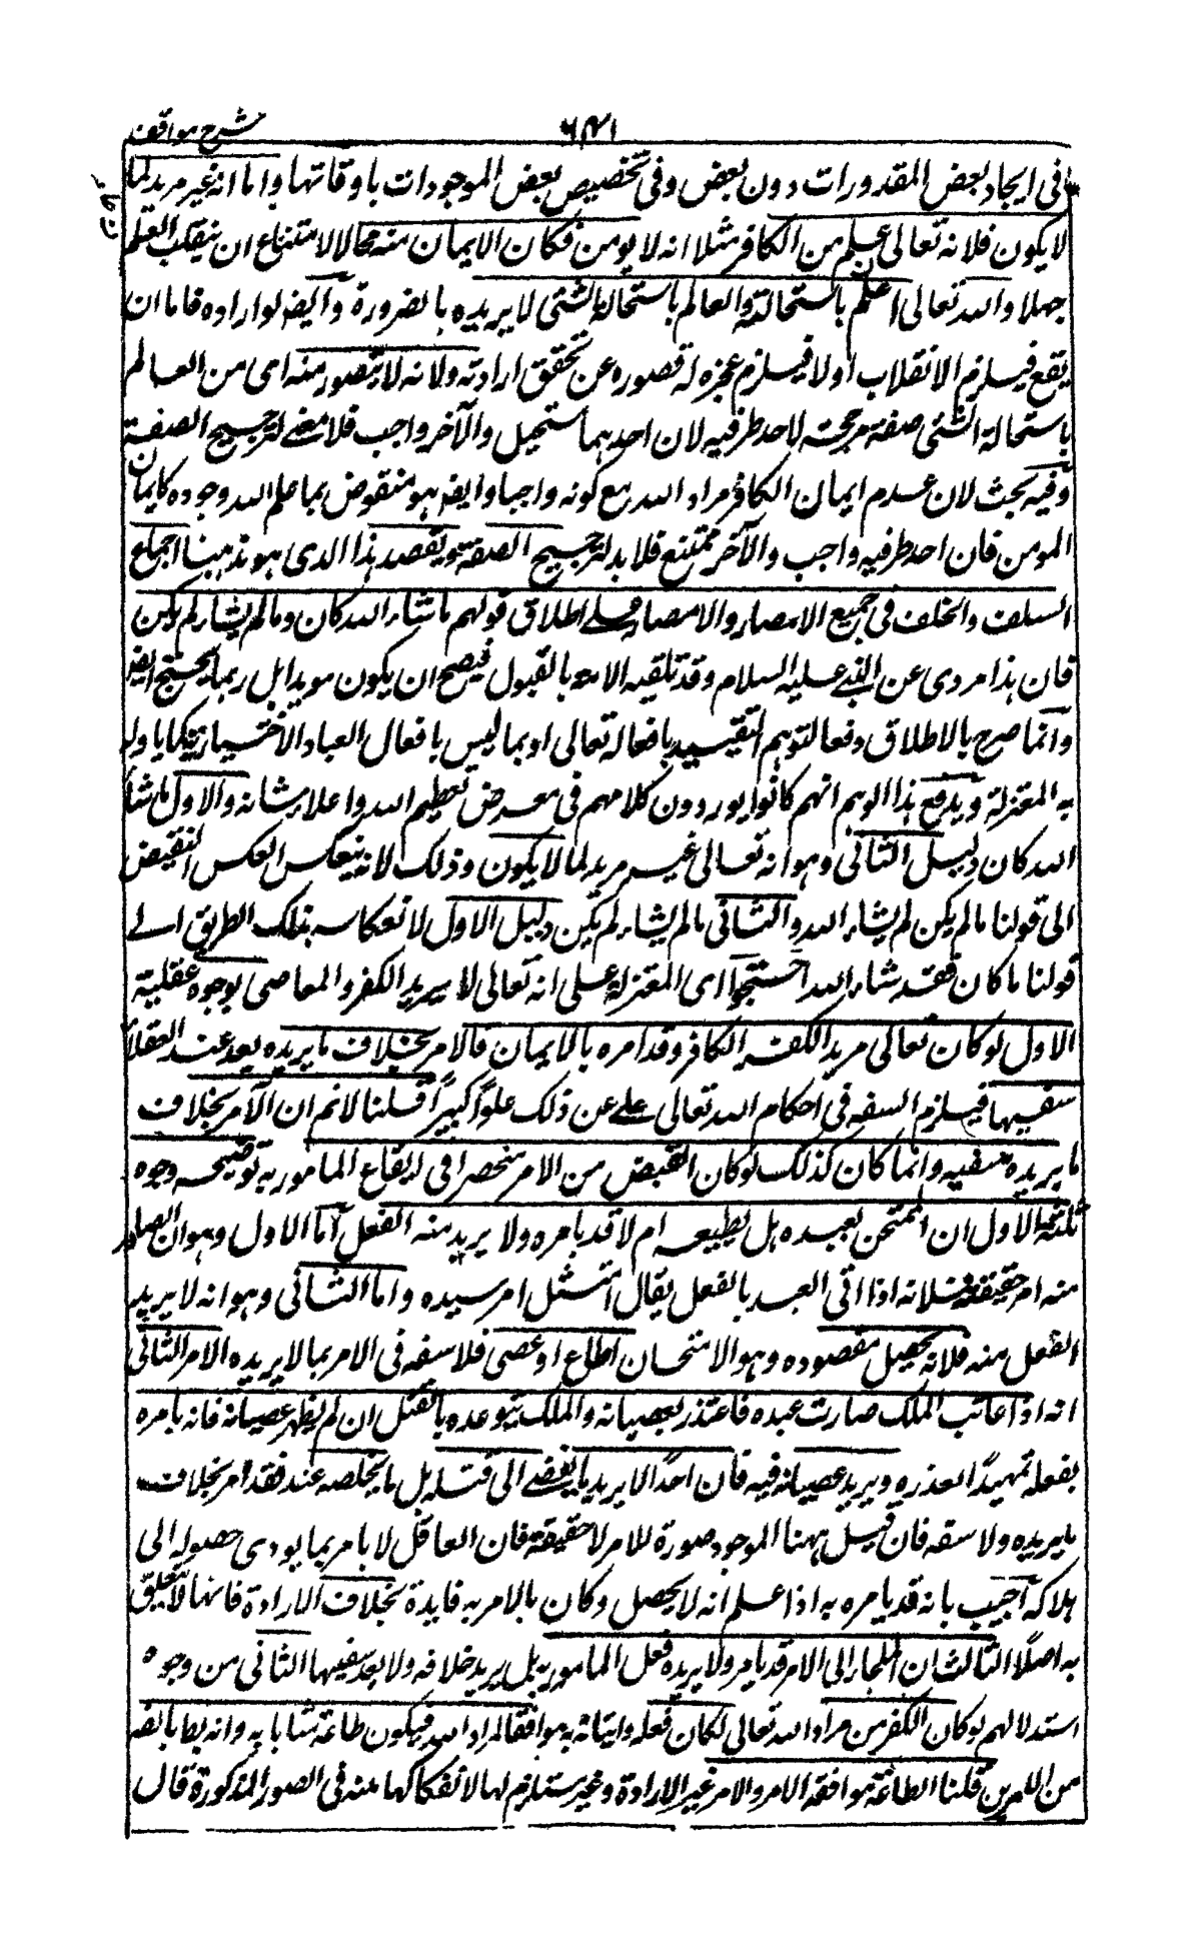 شرح مواقف
٦٤١
فى ايجاد بعض المقدورات دون بعض وفى تخصيص بعض الموجودات باوقاتها واما انه غير مريد لما
لا يكون فلانه تعالى علم من الكافر مثلا انه لا يومن فكان الايمان منه محالا لامتناع ان ينقلب العلم
جهلا والله تعالى اعلم باستحالته والعالم باستحالة الشئ لا يريده بالضرورة وايضا لو اراده فاما ان
يقع فيلزم الانقلاب او لا فيلزم عجزه له قصوره عن تحقق ارادته ولانه لا يتصور منه اى من العالم
باستحالة الشئ صفة مرجحة لاحد طرفيه لان احدهما مستحيل والآخر واجب فلا معنى لترجيح الصفة
وفيه بحث لان عدم ايمان الكافر مراد الله مع كونه واجبا وايضا هو منقوض بما علم الله وجوده كايمان
المومن فان احد طرفيه واجب والآخر ممتنع فلا بد لترجيح الصفة ويقصد هذا الذى هو مذهبنا اجماع
السلف والخلف فى جميع الاعصار والامصار على اطلاق قولهم ما شاء الله كان وما لم يشاء لم يكن
فان هذا مروى عن النبى عليه السلام وقد تلقيه الامة بالقبول فيصح ان يكون مويدا بل ربما يحتج ايضا
وانما صرح بالاطلاق دفعا لتوهم التقييد بافعاله تعالى او بما ليس بافعال العباد الاختيارية كما ياوله
به المعتزلة ويدفع هذا الوهم انهم كانوا يوردون كلامهم فى معرض تعظيم الله واعلاء شانه والاول ما شاء
الله كان دليل الثانى وهو انه تعالى غير مريد لما لا يكون وذلك لانه ينعكس العكس النقيض
الى قولنا ما لم يكن لم يشاء الله والثانى ما لم يشاء لم يكن دليل الاول لانعكاسه بذلك الطريق الى
قولنا ما كان فقد شاء الله احتجوا اى المعتزلة على انه تعالى لا يريد الكفر والمعاصى بوجوه عقلية
الاول لو كان تعالى مريدا لكفر الكافر وقد امره بالايمان فالامر بخلاف ما يريده يعد عند العقلاء
سفيها فيلزم السفه فى احكام الله تعالى على عن ذلك علوا كبيرا قلنا لا نم ان الآمر بخلاف
ما يريده سفيه وانما كان كذلك لو كان الغرض من الامر منحصرا فى ايقاع المامور به توضيحه وجوه
ثلثة الاول ان الممتحن لعبده هل يطيعه ام لا قد يامره ولا يريد منه الفعل اما الاول وهو ان الصادر
منه امر حقيقة فلانه اذا اتى العبد بالفعل يقال امتثل امر سيده واما الثانى وهو انه لا يريد
الفعل منه فلانه يحصل مقصوده وهو الامتحان اطاع او عصى فلا سفه فى الامر بما لا يريده الامر الثانى
انه اذا عاتب الملك ضارب عبده فاعتذر بعصيانه والملك يتوعده بالقتل ان لم يظهر عصيانه فانه يامره
بفعل تمهيدا لعذره ويريد عصيانه فيه فان احدا لا يريد ما يفضى الى قتله بل ما يخلصه عنه فقد امر بخلاف
ما يريده ولا سفه فان قيل ههنا الموجود صورة للامر لا حقيقة فان العاقل لا يامر بما يودى حصوله الى
هلاكه اجيب بانه قد يامره به اذا علم انه لا يحصل وكان بالامر به فايدة بخلاف الارادة فانها لا تتعلق
به اصلا الثالث ان الملجا الى الامر قد يامر ولا يريده فعل المامور به بل يريد خلافه ولا يعد سفيها الثانى من وجوه
استدلالهم لو كان الكفر من مراد الله تعالى لكان فعله واتيانه به موافقا لمراد الله فيكون طاعة مثابا به وانه بط بالضرورة
من الدين قلنا الطاعة موافقة الامر والامر غير الارادة وغير مستلزم لها لانفكاكها منه فى الصور المذكورة قال